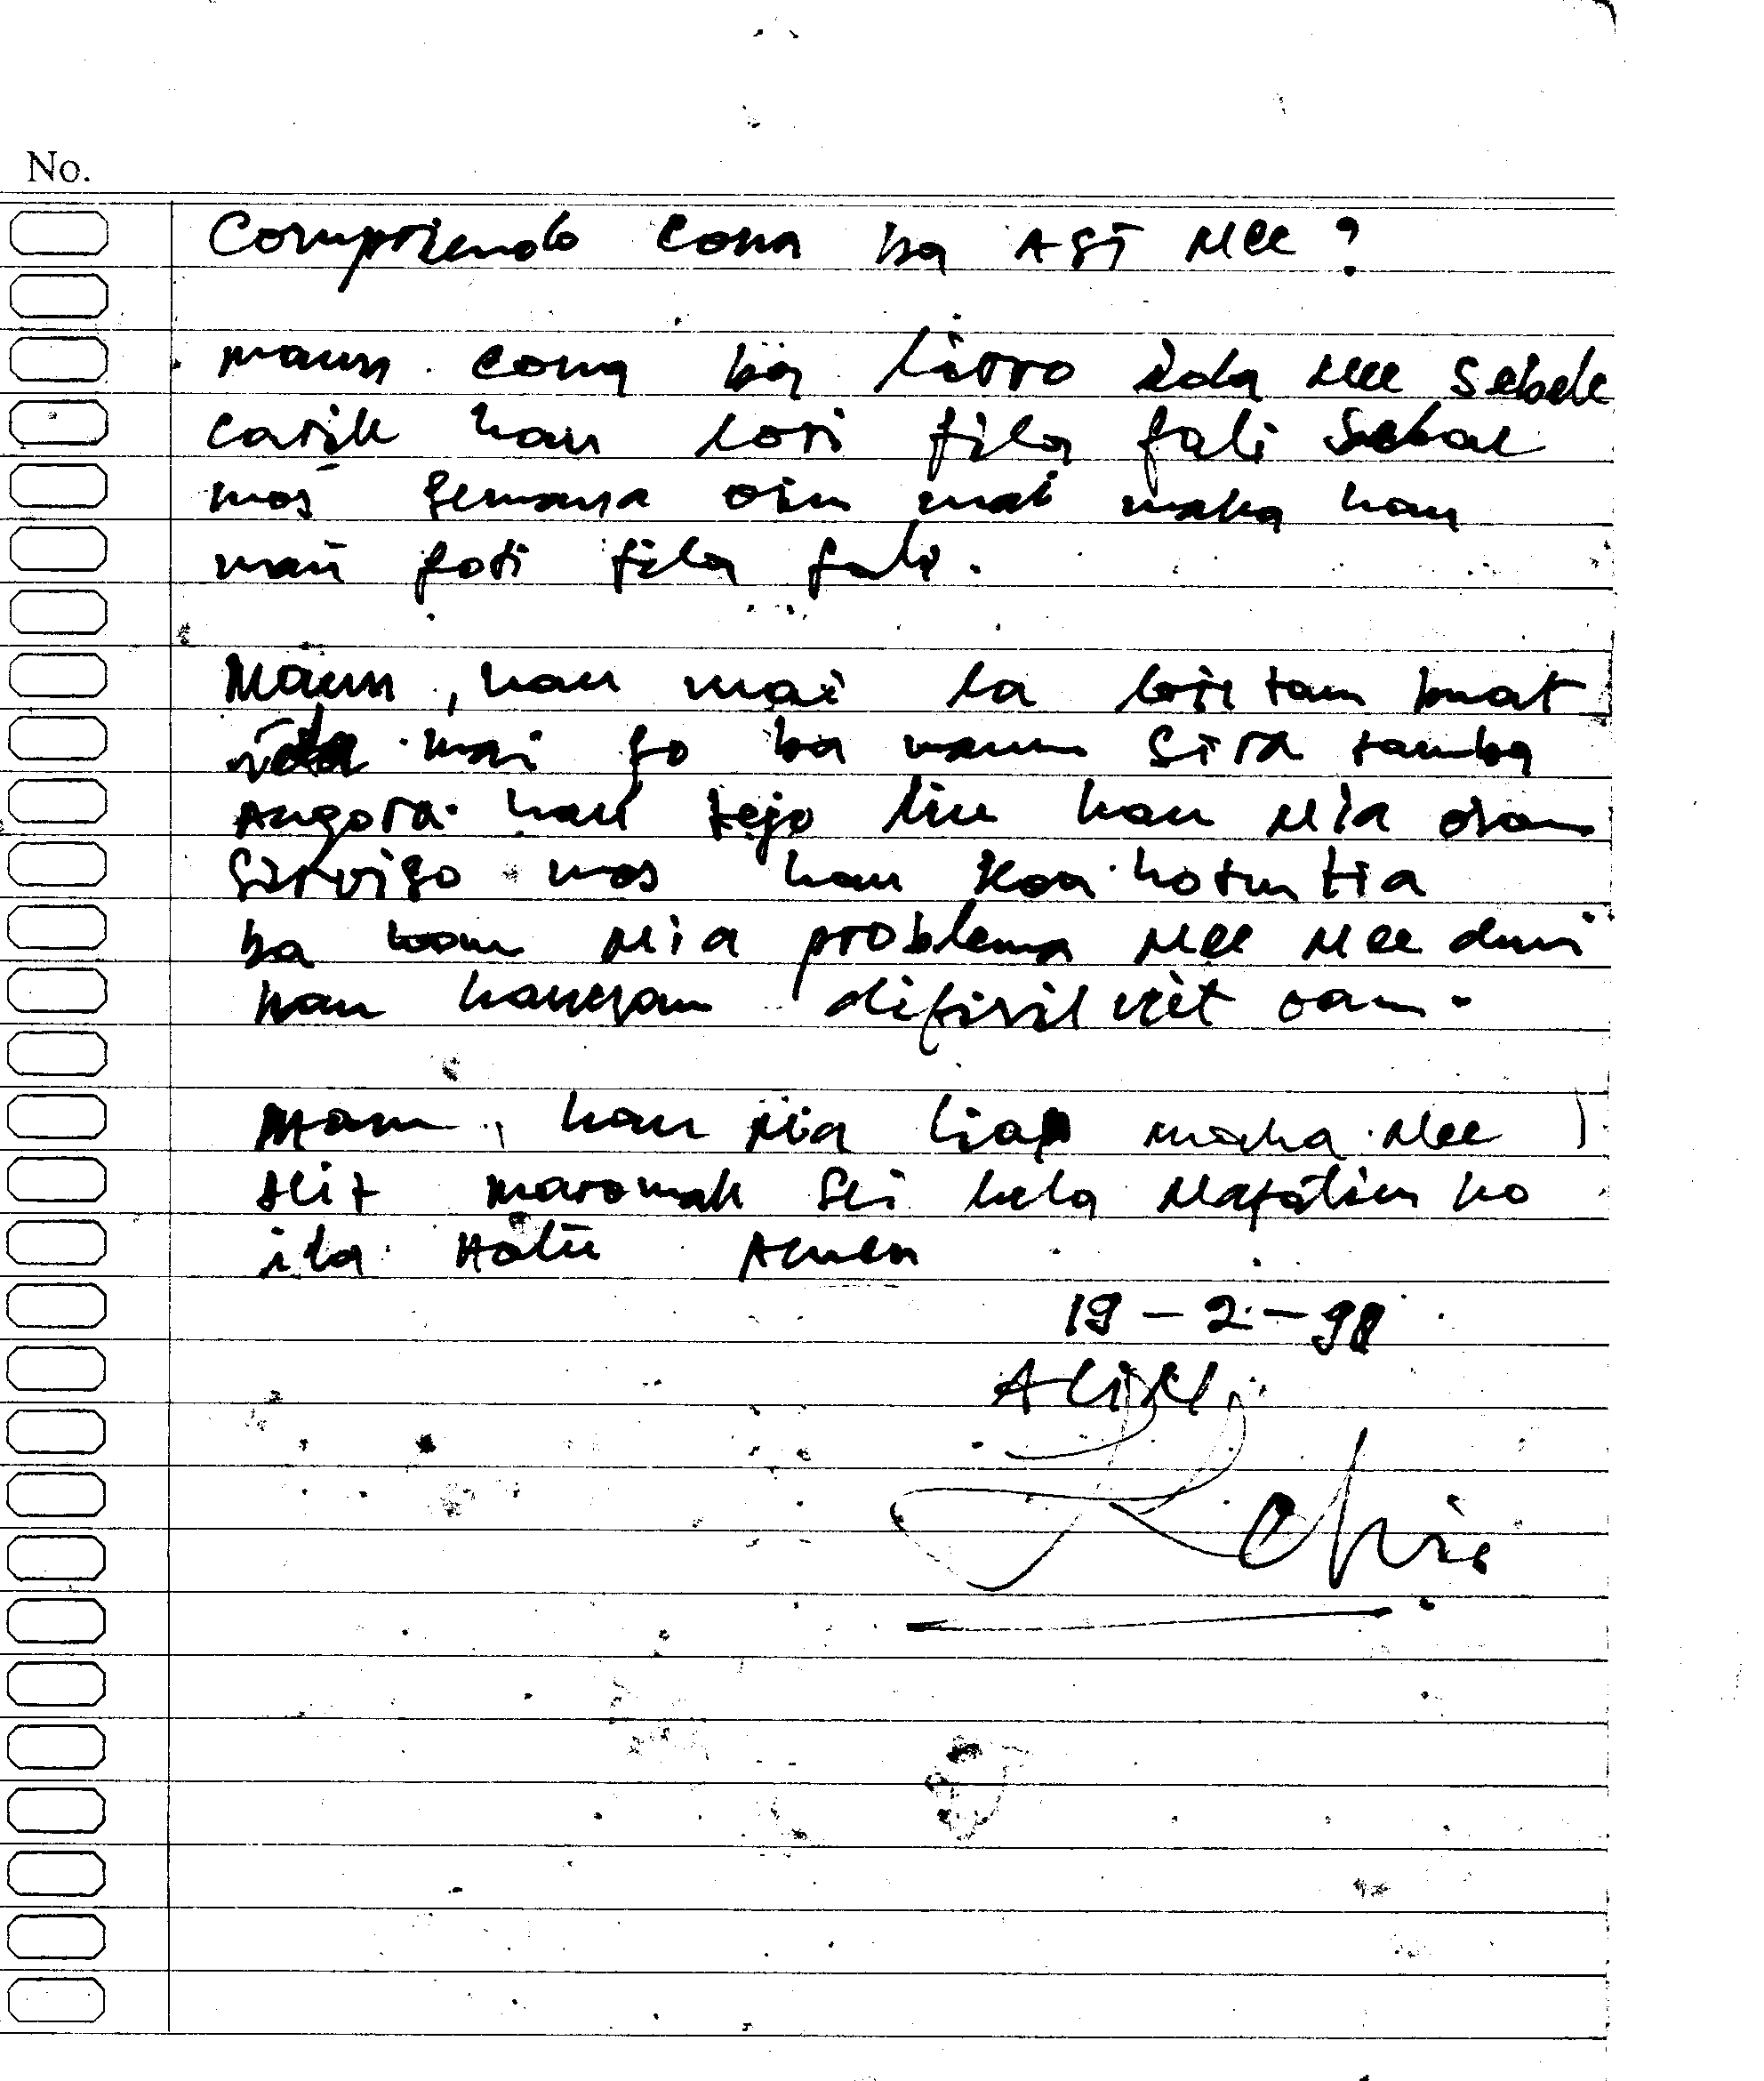 No.
Compriendo Cona ba ASI Nee?
maun cona ba livro ida Nee Sebele
carik hau lori fila fali Sebae
mos Semana oin mai maka hau
mai foti fila fali.
Maun, hau mai la lori tam buat
ida mai fo ba maun Sira tamba
Angora hau tejo liu hau Nia oran
Serviso mos hau hotu tia
ba hau Nia problema Nee Nee duni
hau hanesan difisil oan.
Mam, hau Nia liap maka Nee
Neit maromak Sei hela Nafatien ho
ita Hotu Amen
19-2-98